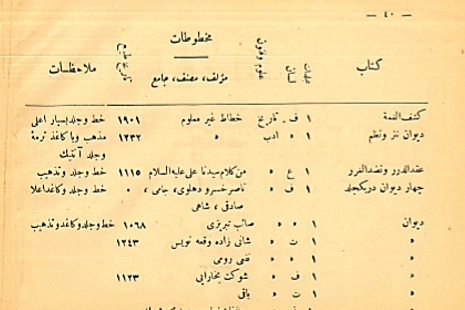 — ٤٠ —
مخطوطات
كتاب جلد لسان علوم وفنون مؤلف، مصنف، جامع تاريخ طبع ملاحظات
كشف الغمة ١ ف. تاريخ خطاط غير معلوم ١٩٠١ خط وجلد بسيار اعلى
ديوان نثر ونظم ١ » ادب » ١٢٣٢ مذهب وبا كاغذ ترمة
وجلد آنتيك
عقدالدرر ونضدالغرر ١ ع » من كلام سيدنا على عليه السلام ١١١٥ خط وجلد وتذهيب
چهار ديوان دريكجلد ١ ف » ناصر خسرو دهلوى، جامى، ٠ خط وجلد وكاغد اعلا
صادقى، شاهى
ديوان ١ » » صائب تبريزى ١٠٦٨ خط وجلد وكاغد وتذهيب
» ١ ت » شانى زاده وقعه نويس ١٢٤٣
» ١ » » نفعى رومى
» ١ ف » شوكت بخارايى ١١٢٣
» ١ ت » باقى